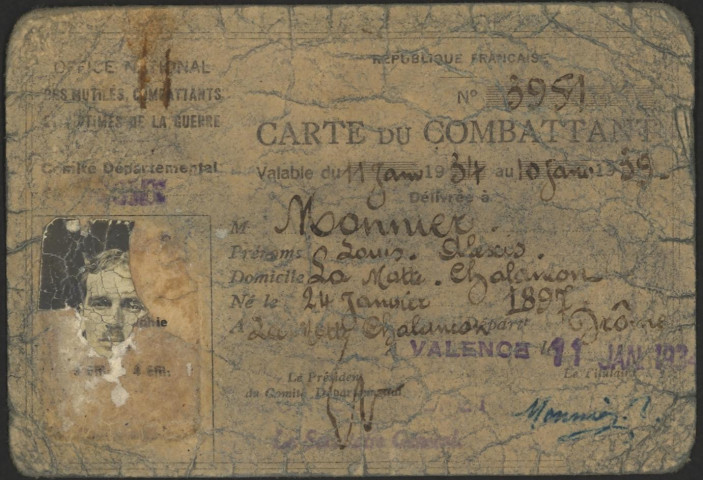 OFFICE NATIONAL
DES MUTILÉS, COMBATTANTS
ET VICTIMES DE LA GUERRE
Comité Départemental
RÉPUBLIQUE FRANÇAISE
N° 3951
CARTE DU COMBATTANT
Valable du 11 Janv 1934 au 10 Janv 1939
Délivrée à
M Monnier.
Prénoms Louis. Alexis.
Domicile La Motte. Chalancon
Né le 24 Janvier 1897
A La Motte Chalancon Départ Drôme
VALENCE le 11 JAN 193
Le Président
du Comité Départemental
Le Titulaire
4 cm.
Le Secrétaire Général
Monnier. L.